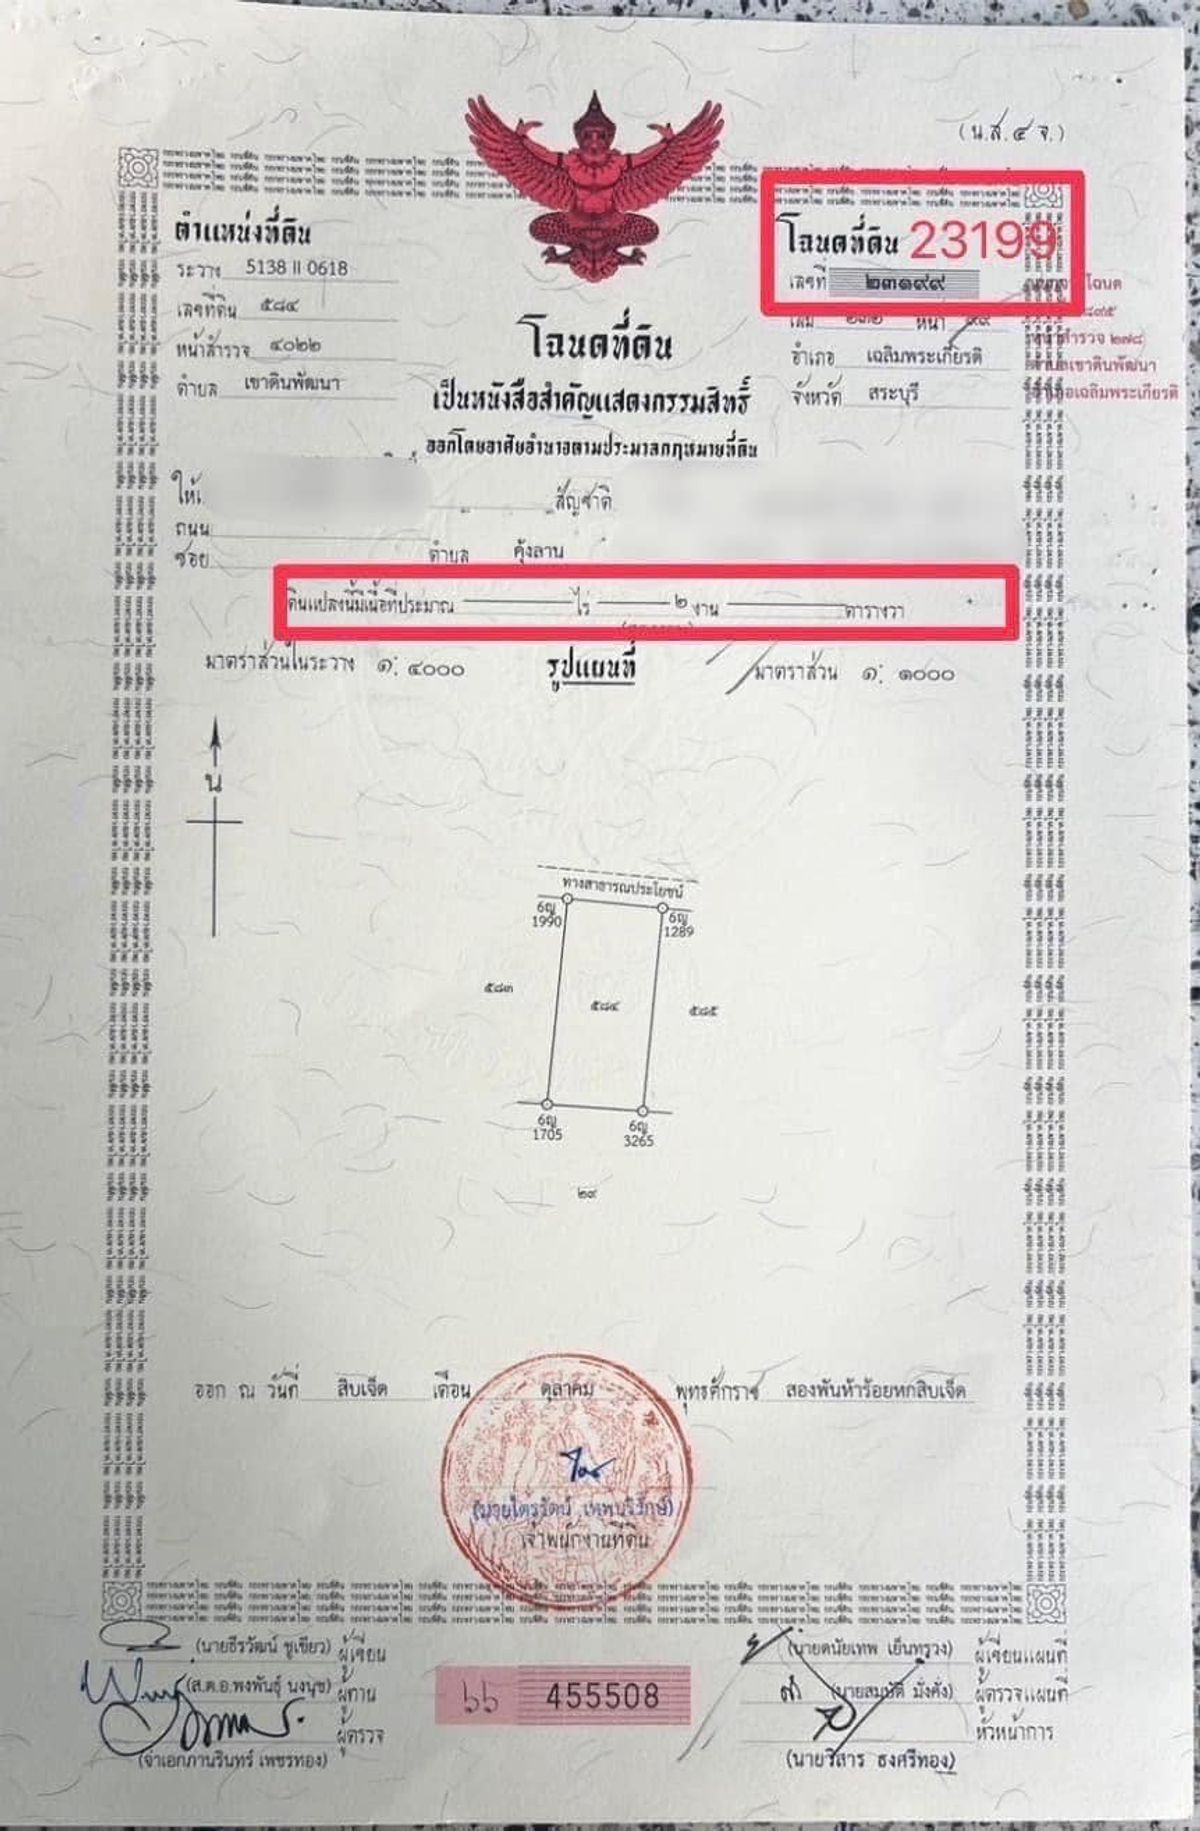 (น.ส.๔ จ.)
ตำแหน่งที่ดิน
ระวาง 5138 II 0618
เลขที่ดิน ๕๘๔
หน้าสำรวจ ๔๐๒๒
ตำบล เขาดินพัฒนา
โฉนดที่ดิน 23199
เลขที่ ๒๓๑๙๙
เล่ม ๒๓๒ หน้า ๙๙
อำเภอ เฉลิมพระเกียรติ
จังหวัด สระบุรี
โฉนด
หน้าสำรวจ ๒๗๘
ตำบลเขาดินพัฒนา
อำเภอเฉลิมพระเกียรติ
โฉนดที่ดิน
เป็นหนังสือสำคัญแสดงกรรมสิทธิ์
ออกโดยอาศัยอำนาจตามประมวลกฎหมายที่ดิน
สัญชาติ
ถนน
ซอย ตำบล คุ้งลาน
ดินแปลงนี้มีเนื้อที่ประมาณ ไร่ ๒ งาน ตารางวา
มาตราส่วนในระวาง ๑: ๔๐๐๐ รูปแผนที่ มาตราส่วน ๑: ๑๐๐๐
น
ทางสาธารณประโยชน์
6ญ 6ญ
1990 1289
๕๘๓ ๕๘๔ ๕๘๕
6ญ 6ญ
1705 3265
๒๙
ออก ณ วันที่ สิบเจ็ด เดือน ตุลาคม พุทธศักราช สองพันห้าร้อยหกสิบเจ็ด
(นายไตรรัตน์ เทพบริรักษ์)
เจ้าพนักงานที่ดิน
(นายธีรวัฒน์ ชูเขียว) ผู้เขียน
(ส.ต.อ.พงพันธุ์ นงนุช) ผู้ทาน
ผู้ตรวจ
(จ่าเอกภานรินทร์ เพชรทอง)
๖๖ 455508
(นายดนัยเทพ เย็นทรวง) ผู้เขียนแผนที่
(นายสมบัติ มั่งคั่ง) ผู้ตรวจแผนที่
หัวหน้าการ
(นายวิสาร ธงศรีทอง)